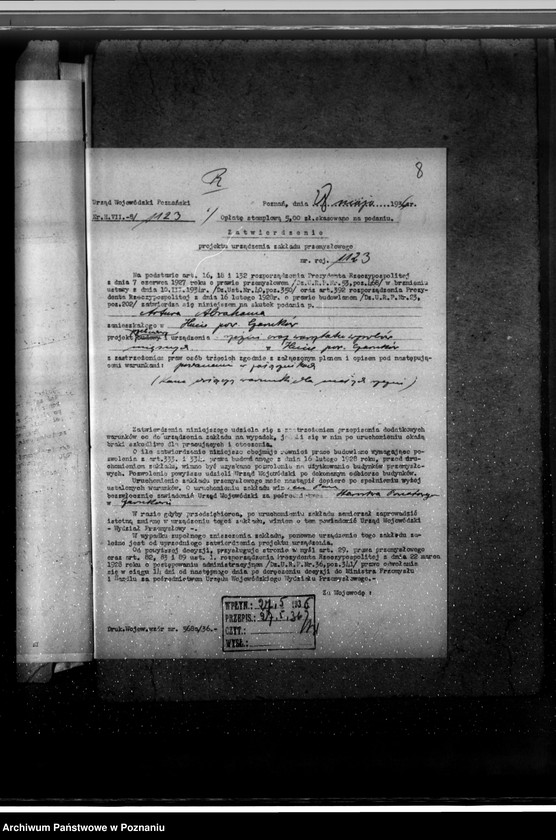 R
8
Urząd Wojewódzki Poznański
Poznań, dnia 28 maja 1936r.
Nr.H.VII.-8/ 1123
Opłatę stemplową 5,00 zł.skasowano na podaniu.
Zatwierdzenie
projektu urządzenia zakładu przemysłowego
nr. rej. 1123
Na podstawie art. 16, 18 i 132 rozporządzenia Prezydenta Rzeczypospolitej
z dnia 7 czerwca 1927 roku o prawie przemysłowem /Dz.U.R.P.Nr.53,poz.468/ w brzmieniu
ustawy z dnia 10.III.1934r. /Dz.Ust.Nr.40,poz.350/ oraz art.392 rozporządzenia Prezy-
denta Rzeczypospolitej z dnia 16 lutego 1928r. o prawie budowlanem /Dz.U.R.P.Nr.23,
poz.202/ zatwierdza się niniejszem na skutek podania p.
Artura Abrahama
zamieszkałego w Hucie pow. Czarnków
projekt i urządzenia oraz
w Hucie pow. Czarnków
z zastrzeżeniem praw osób trzecich zgodnie z załączonym planem i opisem pod następują-
cemi warunkami: podanemi w załączniku
Zatwierdzenia niniejszego udziela się z zastrzeżeniem przepisania dodatkowych
warunków co do urządzenia zakładu na wypadek, jeżeli się w nim po uruchomieniu okażą
braki szkodliwe dla pracujących i otoczenia.
O ile zatwierdzenie niniejsze obejmuje również prawa budowlane wymagające po-
zwolenia z art.333. i 334. prawa budowlanego z dnia 16 lutego 1928 roku, przed uru-
chomieniem zakładu, winno być uzyskane pozwolenie na użytkowanie budynków przemysło-
wych. Pozwolenia powyższe udzieli Urząd Wojewódzki po dokonanem odbiorze budynków.
Uruchomienie zakładu przemysłowego może nastąpić dopiero po spełnieniu wyżej
ustalonych warunków. O uruchomieniu zakładu winien Pan
bezpiecznie zawiadomić Urząd Wojewódzki za pośrednictwem Starostwa Powiatowego
w Czarnkowie
W razie gdyby przedsiębiorca, po uruchomieniu zakładu zamierzał zaprowadzić
istotną zmianę w urządzeniu tegoż zakładu, winien o tem powiadomić Urząd Wojewódzki
- Wydział Przemysłowy -.
W wypadku zupełnego zniszczenia zakładu, ponowne urządzenie tego zakładu za-
leżne jest od uprzedniego zatwierdzenia projektu urządzenia.
Od powyższej decyzji, przysługuje stronie w myśl art. 29. prawa przemysłowego
oraz art. 82, 83 i 89 ust. 1. rozporządzenia Prezydenta Rzeczypospolitej z dnia 22 marca
1928 roku o postępowaniu administracyjnem /Dz.U.R.P.Nr.36,poz.341/ prawo odwołania
się w ciągu 14 dni od następnego dnia po doręczeniu decyzji do Ministra Przemysłu
i Handlu za pośrednictwem Urzędu Wojewódzkiego Wydziału Przemysłowego.-
Za Wojewodę :
WPŁYN.: 27.5 1936
PRZEPIS.: 27.5.36
CZYT.:
WYSŁ.:
Druk.Wojew.wzór nr. 368a/36.-
Archiwum Państwowe w Poznaniu